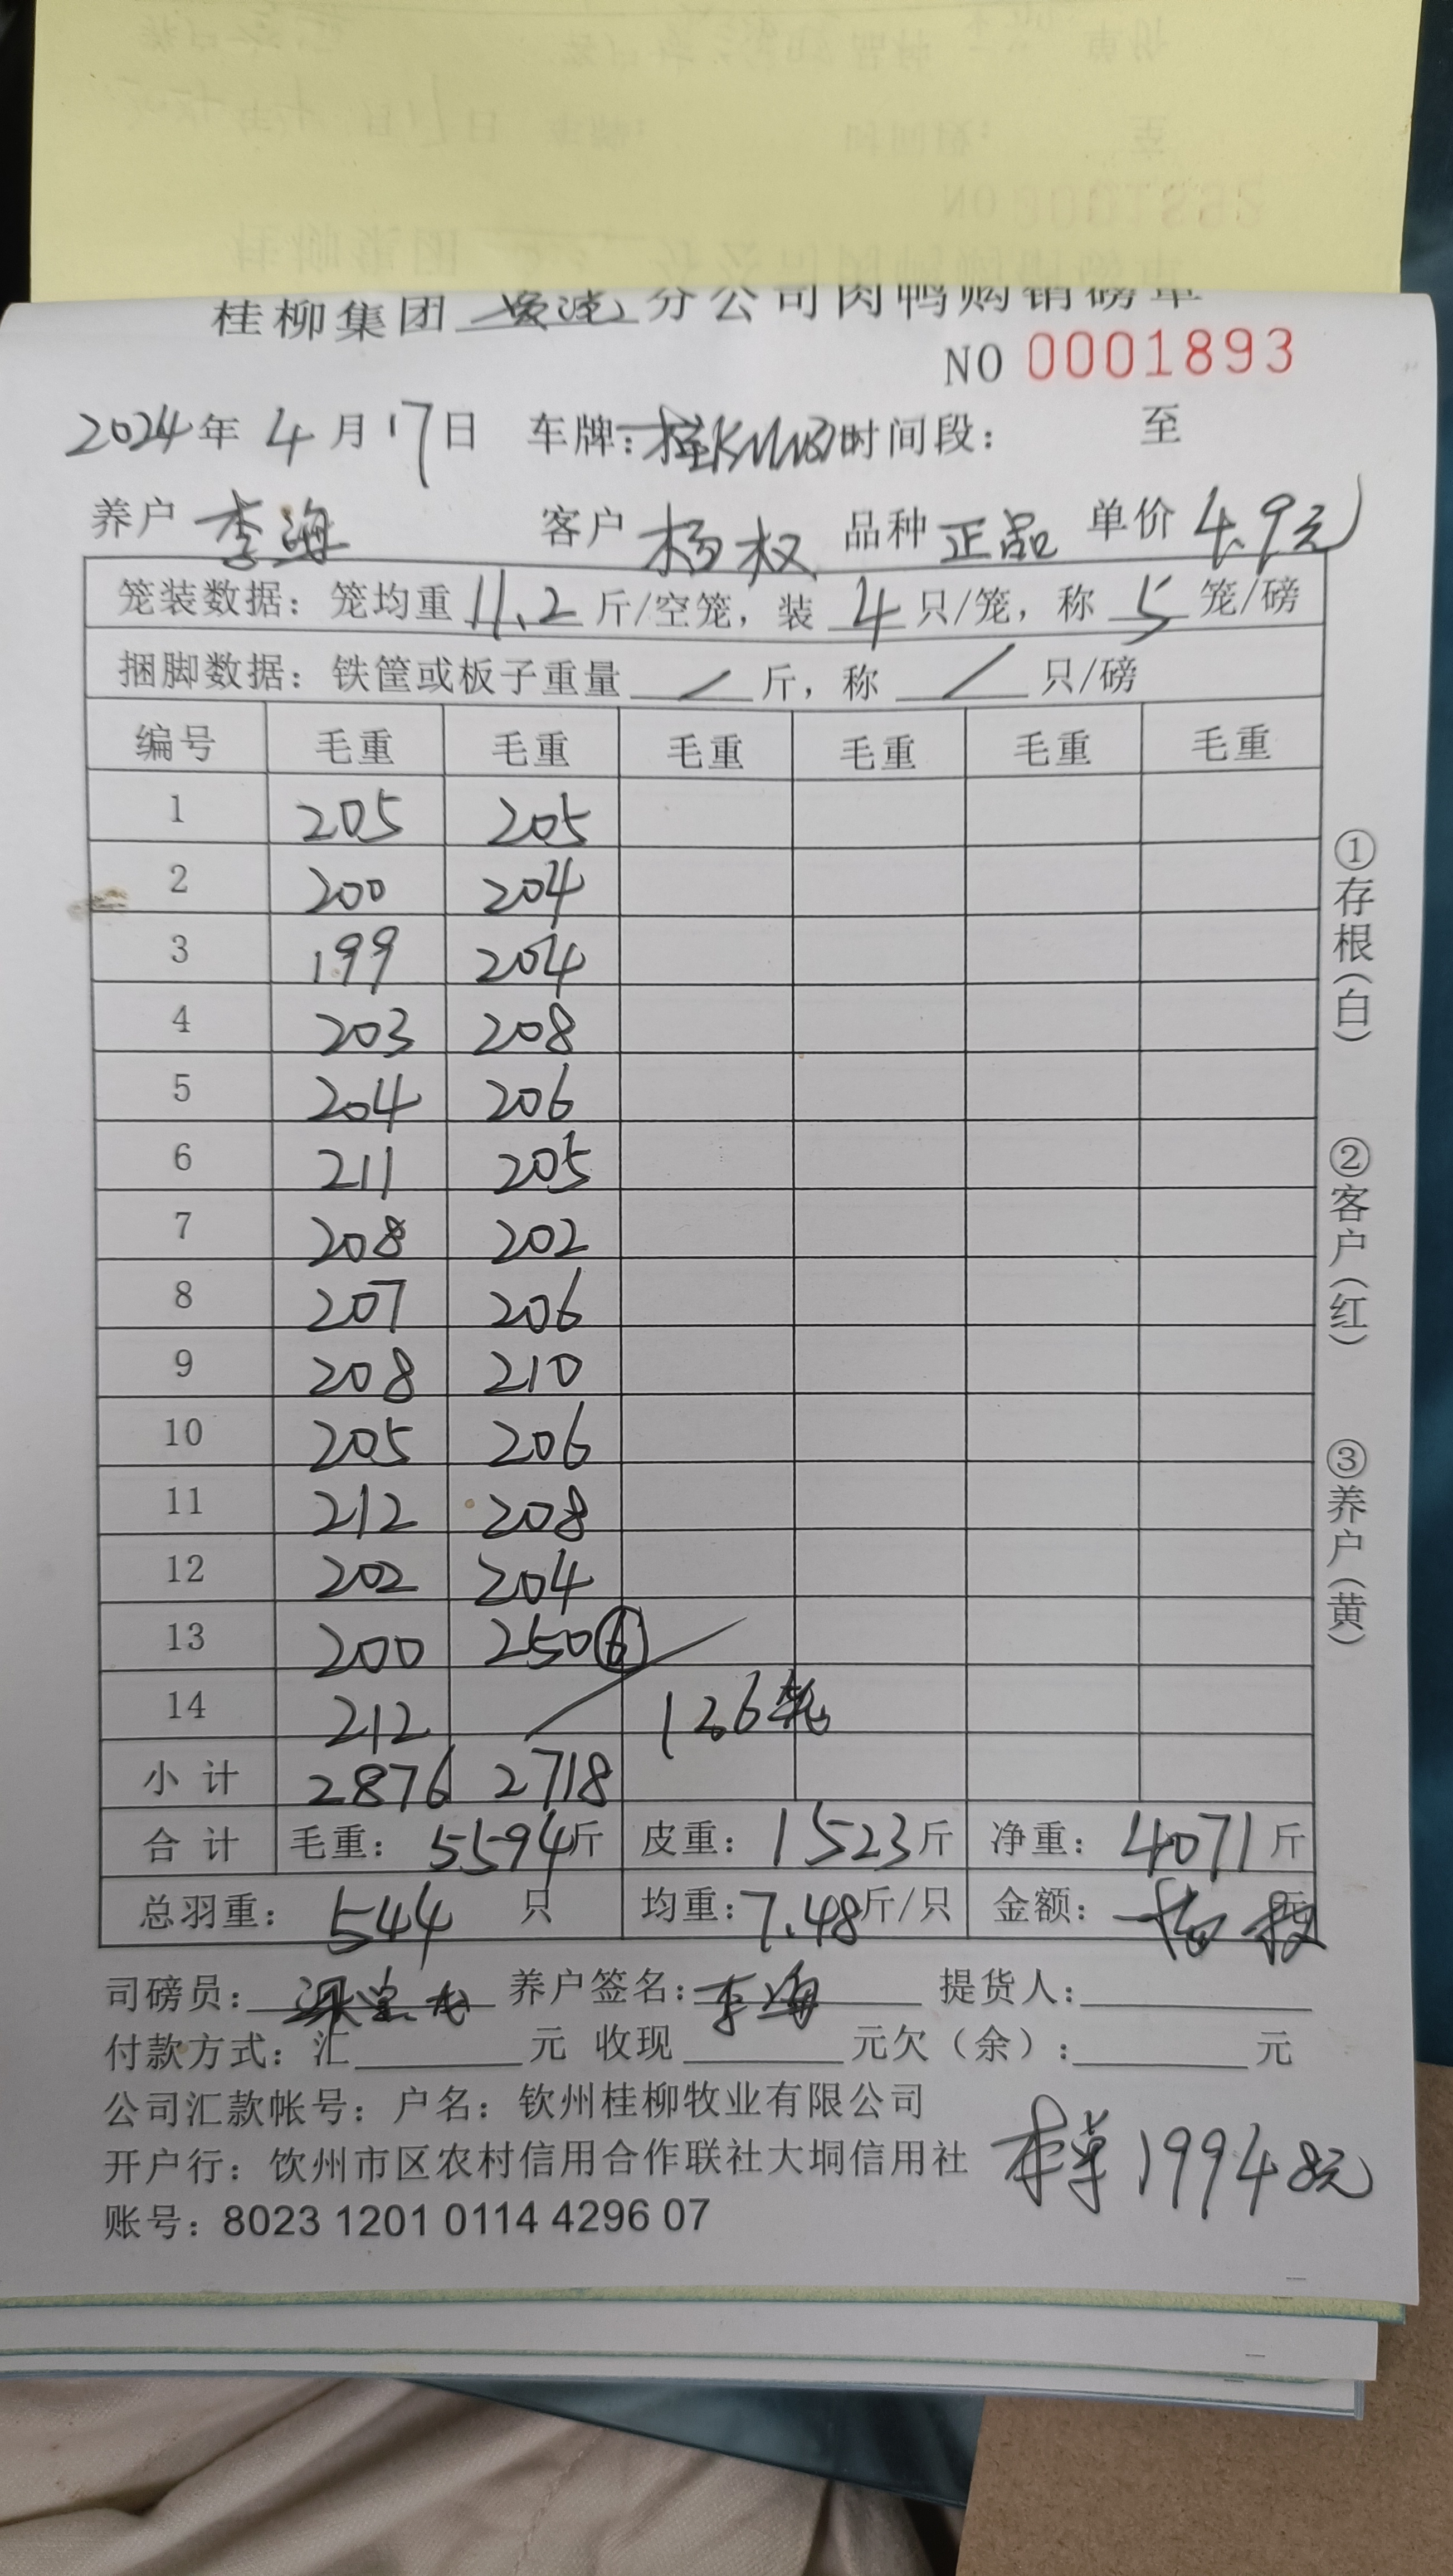 桂柳集团 分公司肉鸭购销磅单
NO 0001893
2024年 4月 17日 车牌: 时间段: 至
养户 李海 客户 杨权 品种 正品 单价 4.9元
笼装数据: 笼均重 11.2 斤/空笼, 装 4 只/笼, 称 5 笼/磅
捆脚数据: 铁筐或板子重量 / 斤, 称 / 只/磅
编号 毛重 毛重 毛重 毛重 毛重 毛重
1 205 205
2 200 204
3 199 204
4 203 208
5 204 206
6 211 205
7 208 202
8 207 206
9 208 210
10 205 206
11 212 208
12 202 204
13 200 250⑥
14 212 / 136笼
小计 2876 2718
合计 毛重: 5594斤 皮重: 1523斤 净重: 4071斤
总羽重: 544 只 均重: 7.48斤/只 金额: 杨权
司磅员: 养户签名: 李海 提货人:
付款方式: 汇 元 收现 元欠(余): 元
公司汇款帐号: 户名: 钦州桂柳牧业有限公司
开户行: 饮州市区农村信用合作联社大垌信用社
本单19948元
账号: 8023 1201 0114 4296 07
①存根(白)
②客户(红)
③养户(黄)